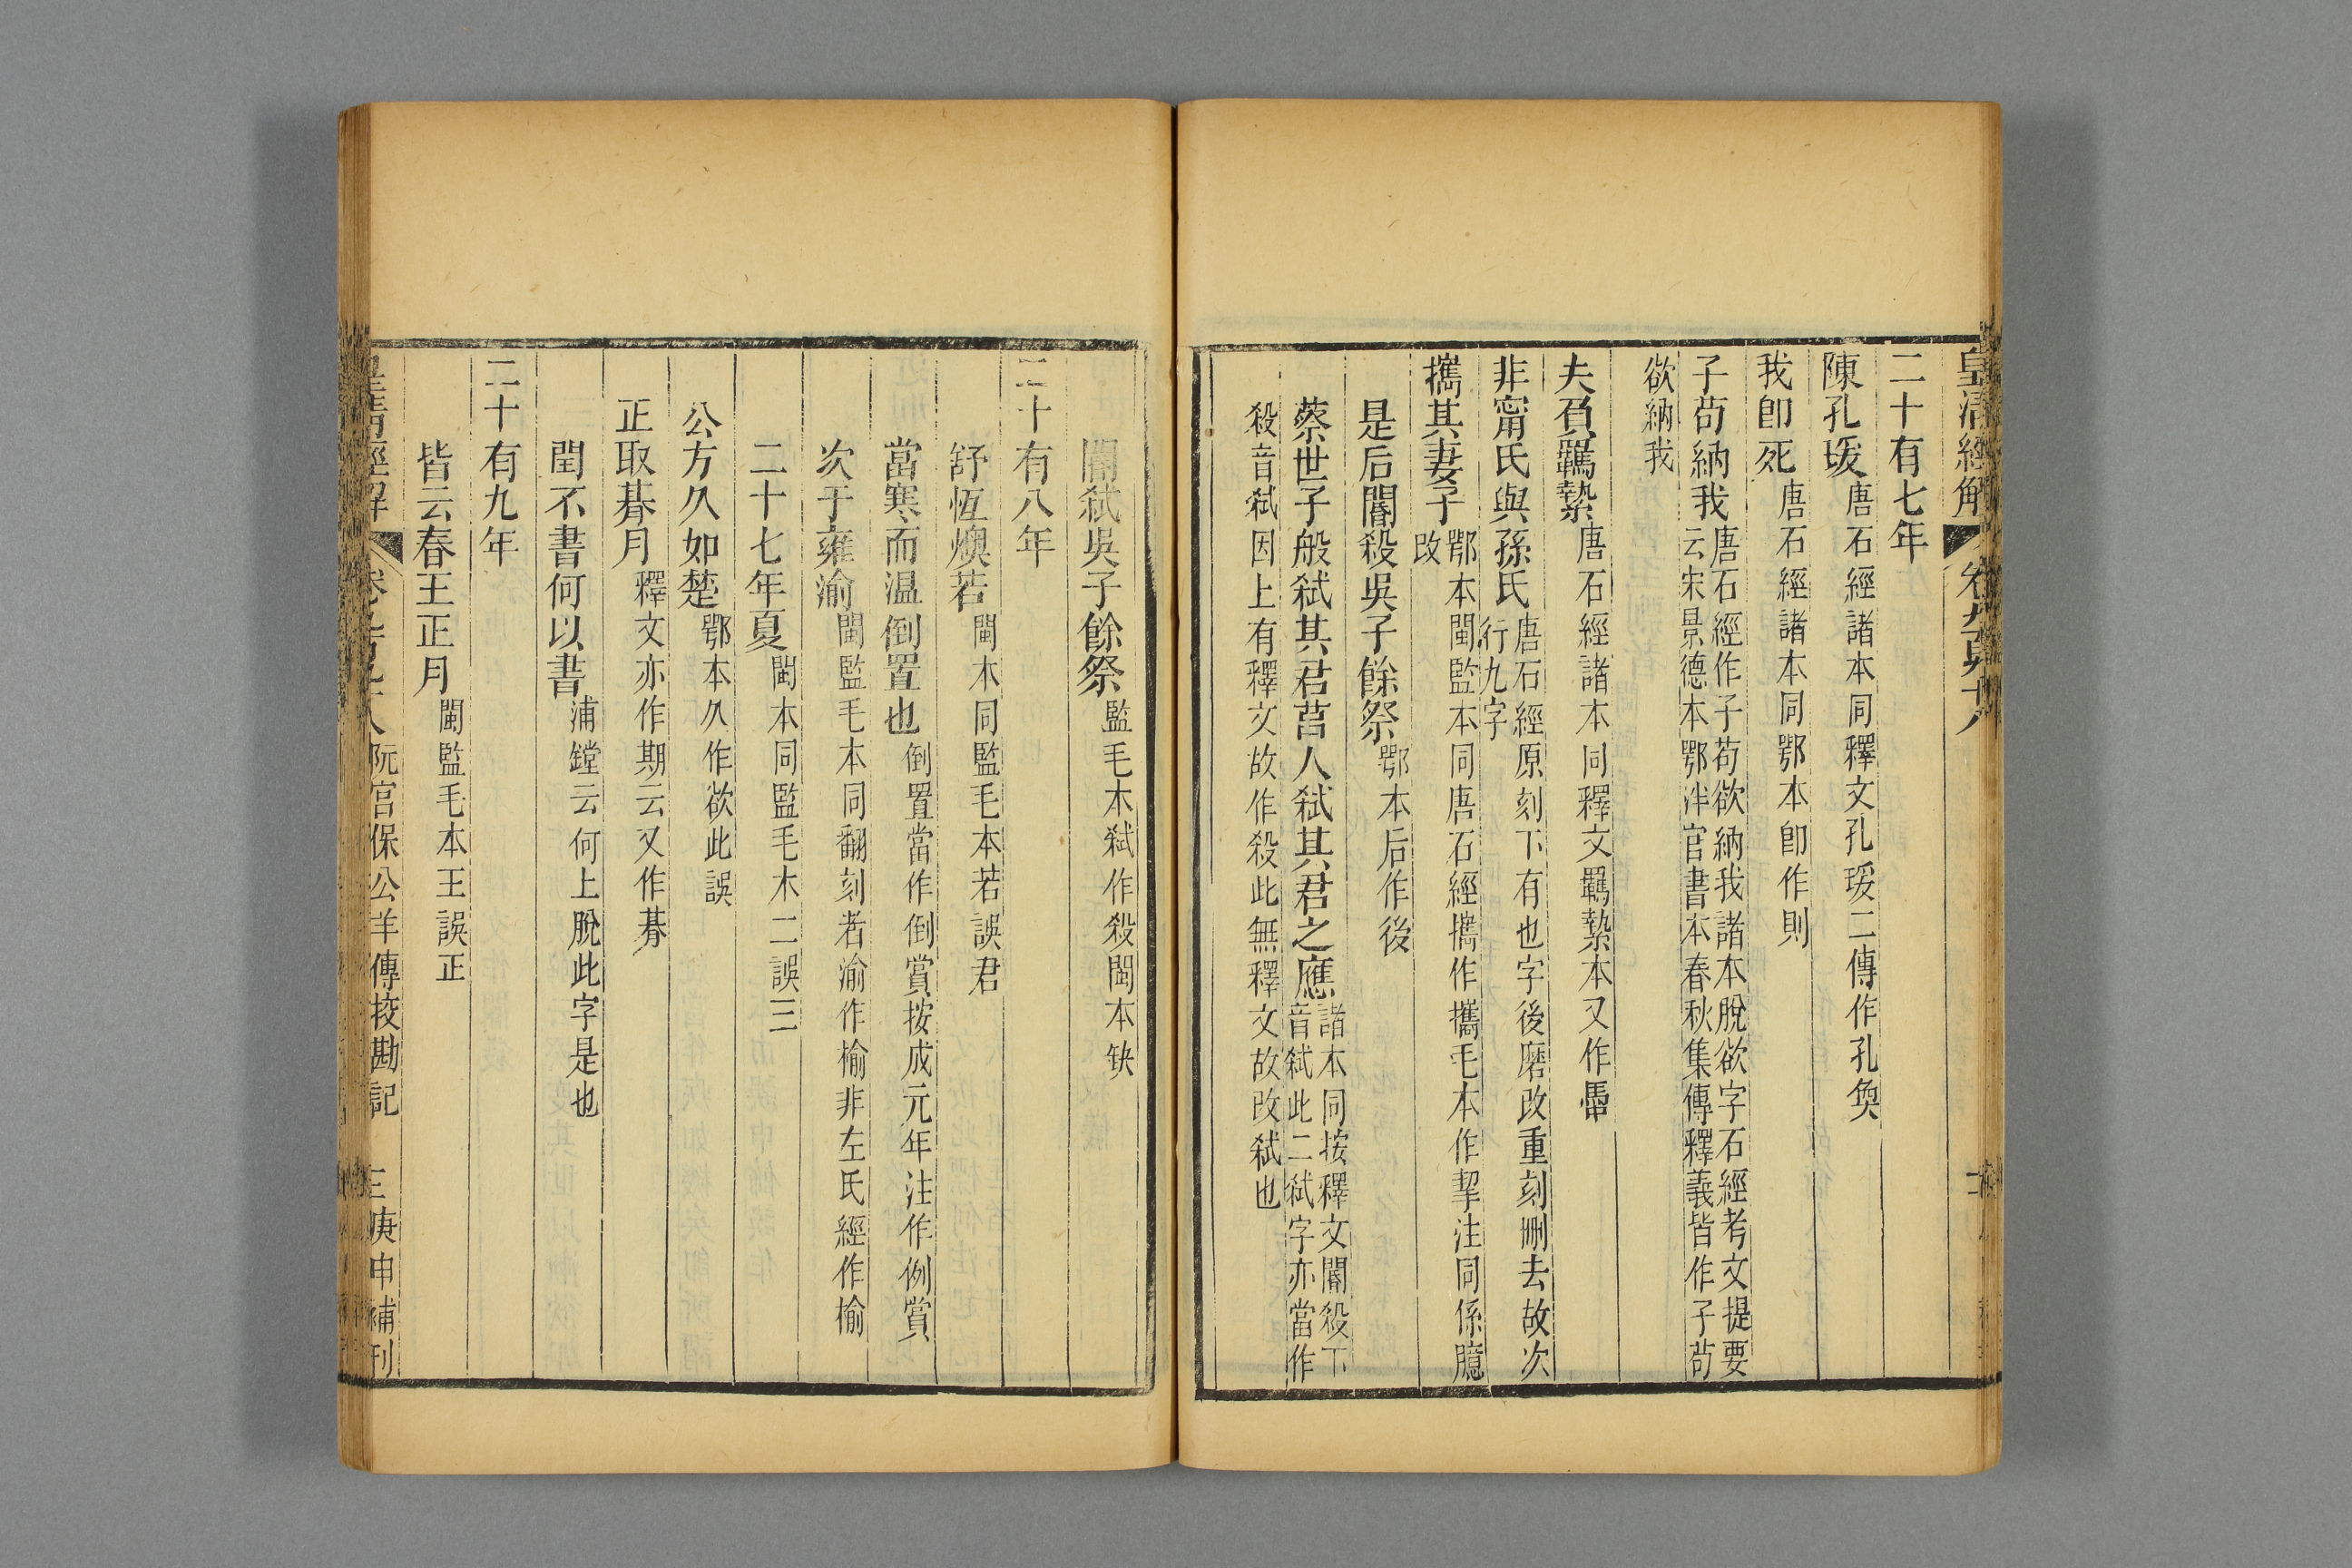 皇清經解
二十有七年
陳孔瑗唐石經諸本同釋文孔瑗二傳作孔奐
我卽死唐石經諸本同鄂本卽作則
子苟納我唐石經作子苟欲納我諸本脫欲字石經考文提要
云宋景德本鄂泮官書本春秋集傳釋義皆作子苟
欲納我
夫負羈縶唐石經諸本同釋文羈縶本又作馽
非甯氏與孫氏唐石經原刻下有也字後磨改重刻刪去故次
行九字
攜其妻子鄂本閩監本同唐石經攜作攜毛本作挈注同係臆
改
是后閽殺吳子餘祭鄂本后作後
蔡世子般弑其君莒人弑其君之應諸本同按釋文閽殺下
音弑此二弑字亦當作
殺音弑因上有釋文故作殺此無釋文故改弑也
閽弑吳子餘祭監毛本弑作殺閩本缺
二十有八年
舒恆燠若閩本同監毛本若誤君
當寒而温倒置也倒置當作倒賞按成元年注作例賞
次于雍渝閩監毛本同翻刻者渝作榆非左氏經作榆
二十七年夏閩本同監毛本二誤三
公方久如楚鄂本久作欲此誤
正取朞月釋文亦作期云又作朞
閏不書何以書浦鏜云何上脫此字是也
二十有九年
皆云春王正月閩監毛本王誤正
皇清經解 阮宮保公羊傳挍勘記 庚申補刊